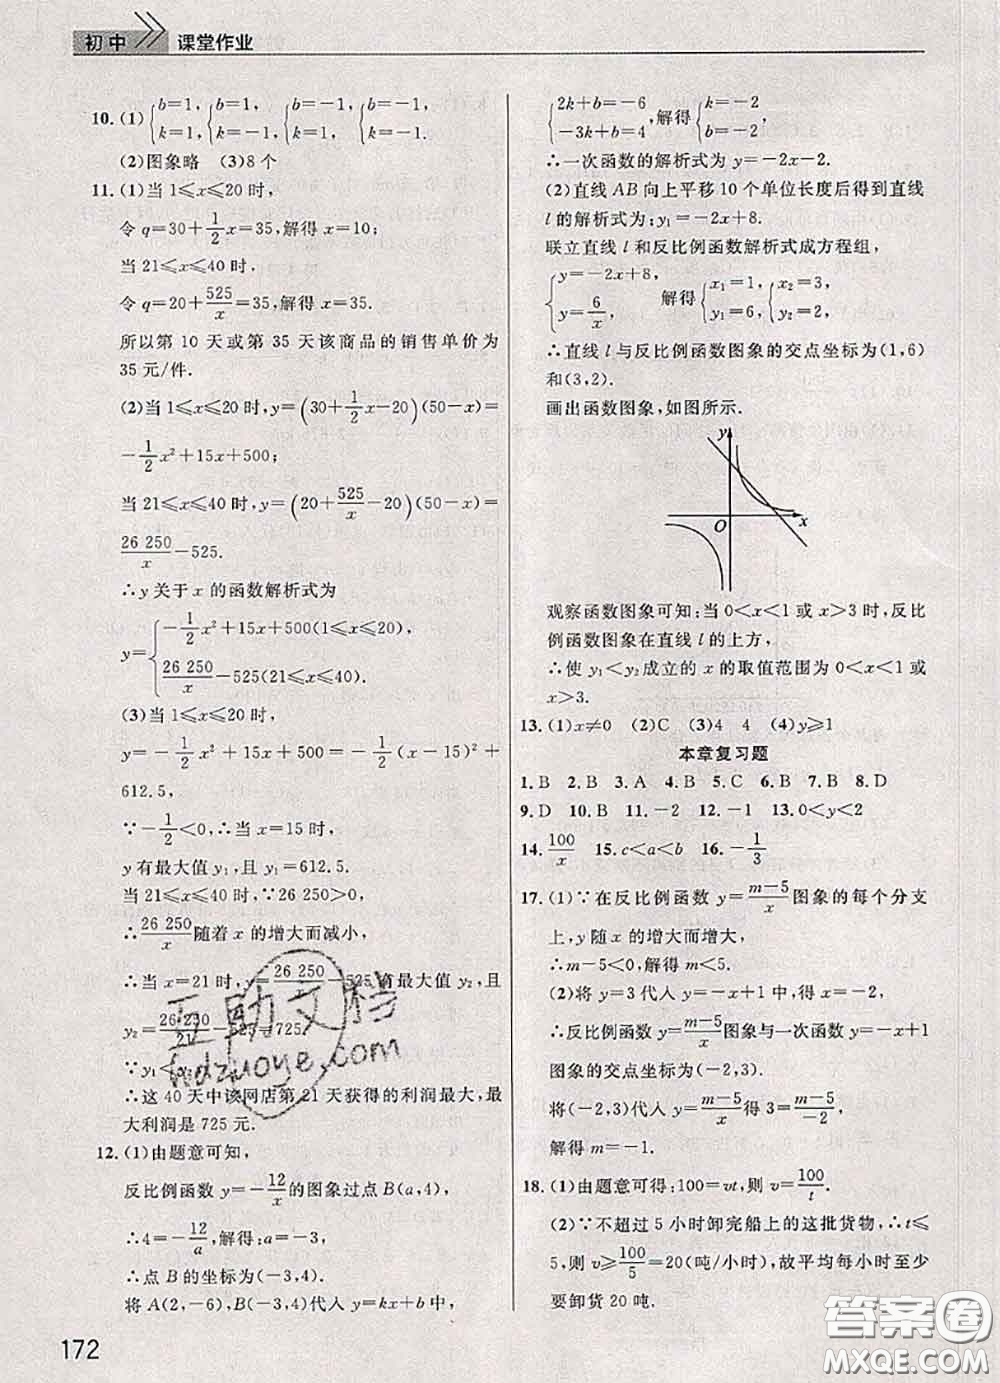 初中 课堂作业
10. (1) {b=1, k=1, {b=1, k=-1, {b=-1, k=1, {b=-1, k=-1.
(2)图象略 (3)8个
11. (1)当 1≤x≤20 时,
令 q=30+1/2 x=35,解得 x=10;
当 21≤x≤40 时,
令 q=20+525/x=35,解得 x=35.
所以第 10 天或第 35 天该商品的销售单价为
35 元/件.
(2)当 1≤x≤20 时,y=(30+1/2 x-20)(50-x)=
-1/2 x²+15x+500;
当 21≤x≤40 时,y=(20+525/x-20)(50-x)=
26 250/x-525.
∴y 关于 x 的函数解析式为
y={-1/2 x²+15x+500(1≤x≤20),
26 250/x-525(21≤x≤40).
(3)当 1≤x≤20 时,
y=-1/2 x²+15x+500=-1/2 (x-15)²+
612.5,
∵-1/2<0,∴当 x=15 时,
y 有最大值 y₁,且 y₁=612.5.
当 21≤x≤40 时,∵26 250>0,
∴26 250/x 随着 x 的增大而减小,
∴当 x=21 时,y=26 250/x-525 有最大值 y₂,且
y₂=26 250/21-525=725.
∵y₁<y₂,
∴这 40 天中该网店第 21 天获得的利润最大,最
大利润是 725 元.
12. (1)由题意可知,
反比例函数 y=-12/x 的图象过点 B(a,4),
∴4=-12/a,解得:a=-3,
∴点 B 的坐标为(-3,4).
将 A(2,-6),B(-3,4)代入 y=kx+b 中,
172
{2k+b=-6, -3k+b=4, 解得 {k=-2, b=-2,
∴一次函数的解析式为 y=-2x-2.
(2)直线 AB 向上平移 10 个单位长度后得到直线
l 的解析式为:y₁=-2x+8.
联立直线 l 和反比例函数解析式成方程组,
{y=-2x+8, y=6/x, 解得 {x₁=1, y₁=6, {x₂=3, y₂=2,
∴直线 l 与反比例函数图象的交点坐标为(1,6)
和(3,2).
画出函数图象,如图所示.
y
O x
观察函数图象可知:当 0<x<1 或 x>3 时,反比
例函数图象在直线 l 的上方,
∴使 y₁<y₂成立的 x 的取值范围为 0<x<1 或
x>3.
13. (1)x≠0 (2)C (3)4 4 (4)y≥1
本章复习题
1. B 2. B 3. A 4. B 5. C 6. B 7. B 8. D
9. D 10. B 11. -2 12. -1 13. 0<y<2
14. 100/x 15. c<a<b 16. -1/3
17. (1)∵在反比例函数 y=m-5/x 图象的每个分支
上,y 随 x 的增大而增大,
∴m-5<0,解得 m<5.
(2)将 y=3 代入 y=-x+1 中,得 x=-2,
∴反比例函数 y=m-5/x 图象与一次函数 y=-x+1
图象的交点坐标为(-2,3).
将(-2,3)代入 y=m-5/x 得 3=m-5/-2,
解得 m=-1.
18. (1)由题意可得:100=vt,则 v=100/t.
(2)∵不超过 5 小时卸完船上的这批货物,∴t≤
5,则 v≥100/5=20(吨/小时),故平均每小时至少
要卸货 20 吨.
互助文档
hdzuoye.com
答案圈
MXQE.COM